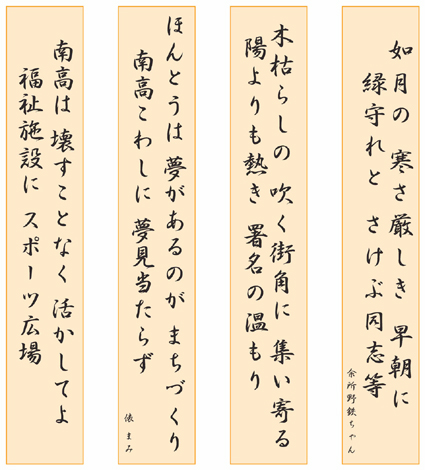 如月の 寒さ厳しき 早朝に
緑守れと さけぶ同志等
余所野鉄ちゃん
木枯らしの 吹く街角に 集い寄る
陽よりも熱き 署名の温もり
ほんとうは 夢があるのが まちづくり
南高こわしに 夢見当たらず
俵 まみ
南高は 壊すことなく 活かしてよ
福祉施設に スポーツ広場